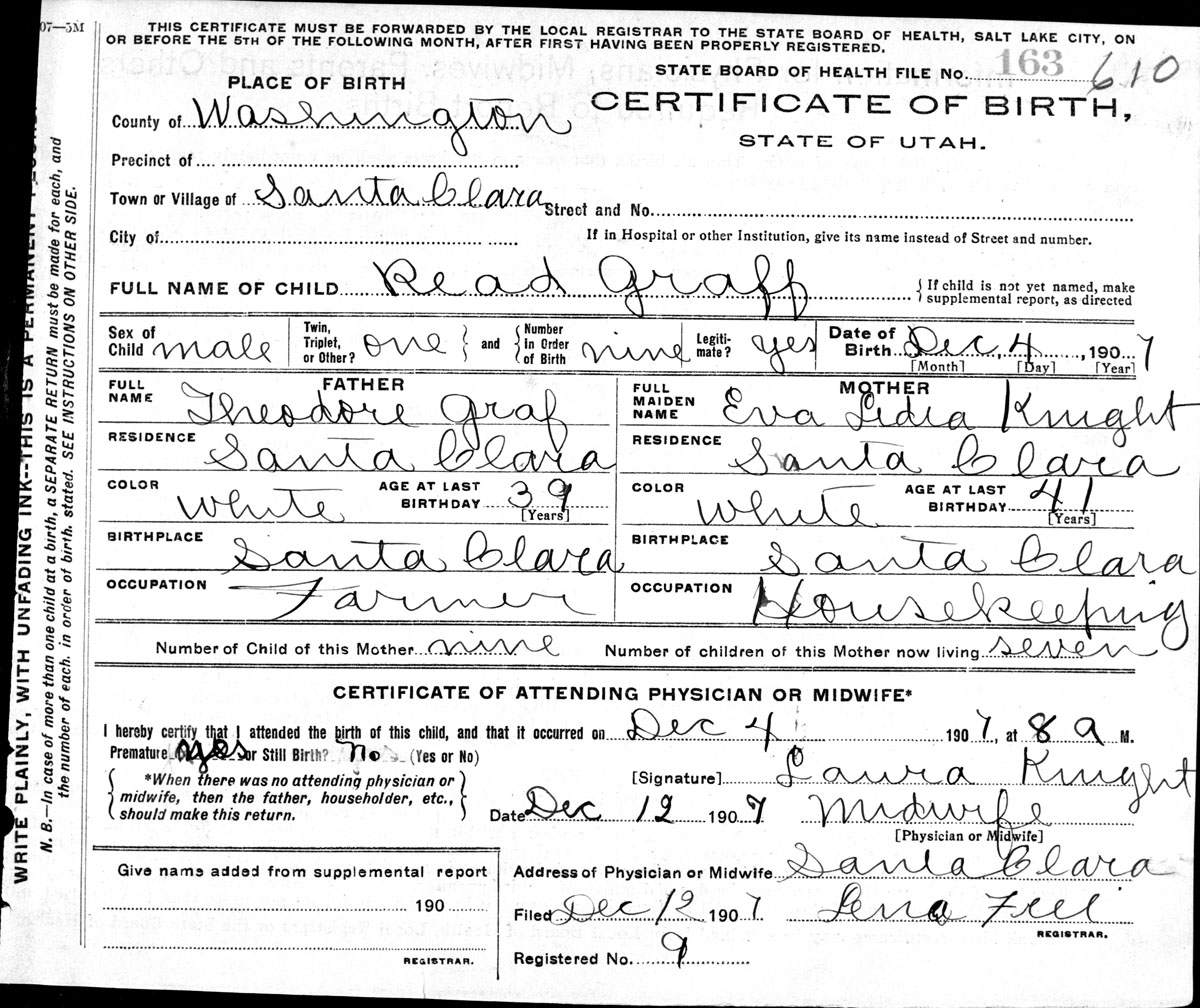 07—5M
THIS CERTIFICATE MUST BE FORWARDED BY THE LOCAL REGISTRAR TO THE STATE BOARD OF HEALTH, SALT LAKE CITY, ON
OR BEFORE THE 5TH OF THE FOLLOWING MONTH, AFTER FIRST HAVING BEEN PROPERLY REGISTERED.
STATE BOARD OF HEALTH FILE No. 163 610
PLACE OF BIRTH
CERTIFICATE OF BIRTH,
STATE OF UTAH.
County of Washington
Precinct of
Town or Village of Santa Clara Street and No.
City of If in Hospital or other Institution, give its name instead of Street and number.
FULL NAME OF CHILD Read Graff { If child is not yet named, make supplemental report, as directed
Sex of Child male Twin, Triplet, or Other? one } and { Number in Order of Birth nine Legiti-mate? yes Date of Birth Dec, 4, 1907
[Month] [Day] [Year]
FATHER MOTHER
FULL NAME Theodore Graf FULL MAIDEN NAME Eva Lidia Knight
RESIDENCE Santa Clara RESIDENCE Santa Clara
COLOR White AGE AT LAST BIRTHDAY 39 [Years] COLOR White AGE AT LAST BIRTHDAY 41 [Years]
BIRTHPLACE Santa Clara BIRTHPLACE Santa Clara
OCCUPATION Farmer OCCUPATION Housekeeping
Number of Child of this Mother nine Number of children of this Mother now living seven
CERTIFICATE OF ATTENDING PHYSICIAN OR MIDWIFE*
I hereby certify that I attended the birth of this child, and that it occurred on Dec 4 1907, at 8 a M.
Premature yes or Still Birth? no (Yes or No)
{ *When there was no attending physician or
midwife, then the father, householder, etc.,
should make this return. }
[Signature] Laura Knight
Date Dec 12 1907 Midwife
[Physician or Midwife]
Give name added from supplemental report
190
REGISTRAR.
Address of Physician or Midwife Santa Clara
Filed Dec 12 1907 Lena Frei
REGISTRAR.
Registered No. 9
WRITE PLAINLY, WITH UNFADING INK--THIS IS A PERMANENT
N. B.—In case of more than one child at a birth, a SEPARATE RETURN must be made for each, and
the number of each, in order of birth, stated. SEE INSTRUCTIONS ON OTHER SIDE.